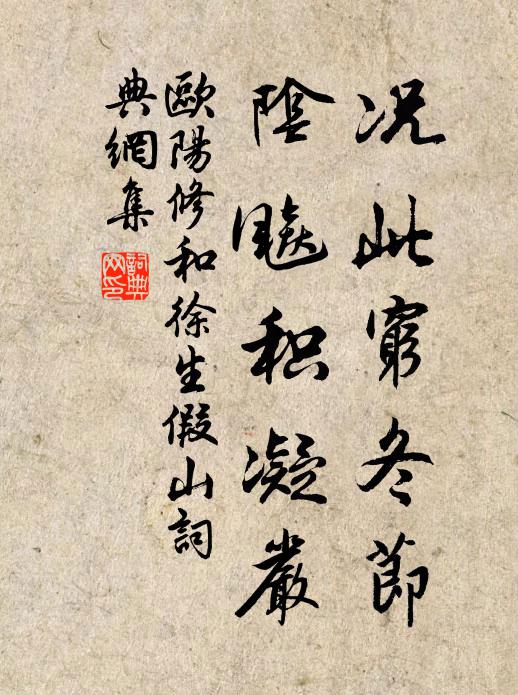 况此窮冬節
陰飈积凝嚴
歐陽修和徐生假山詞
典網集
詞典
网印